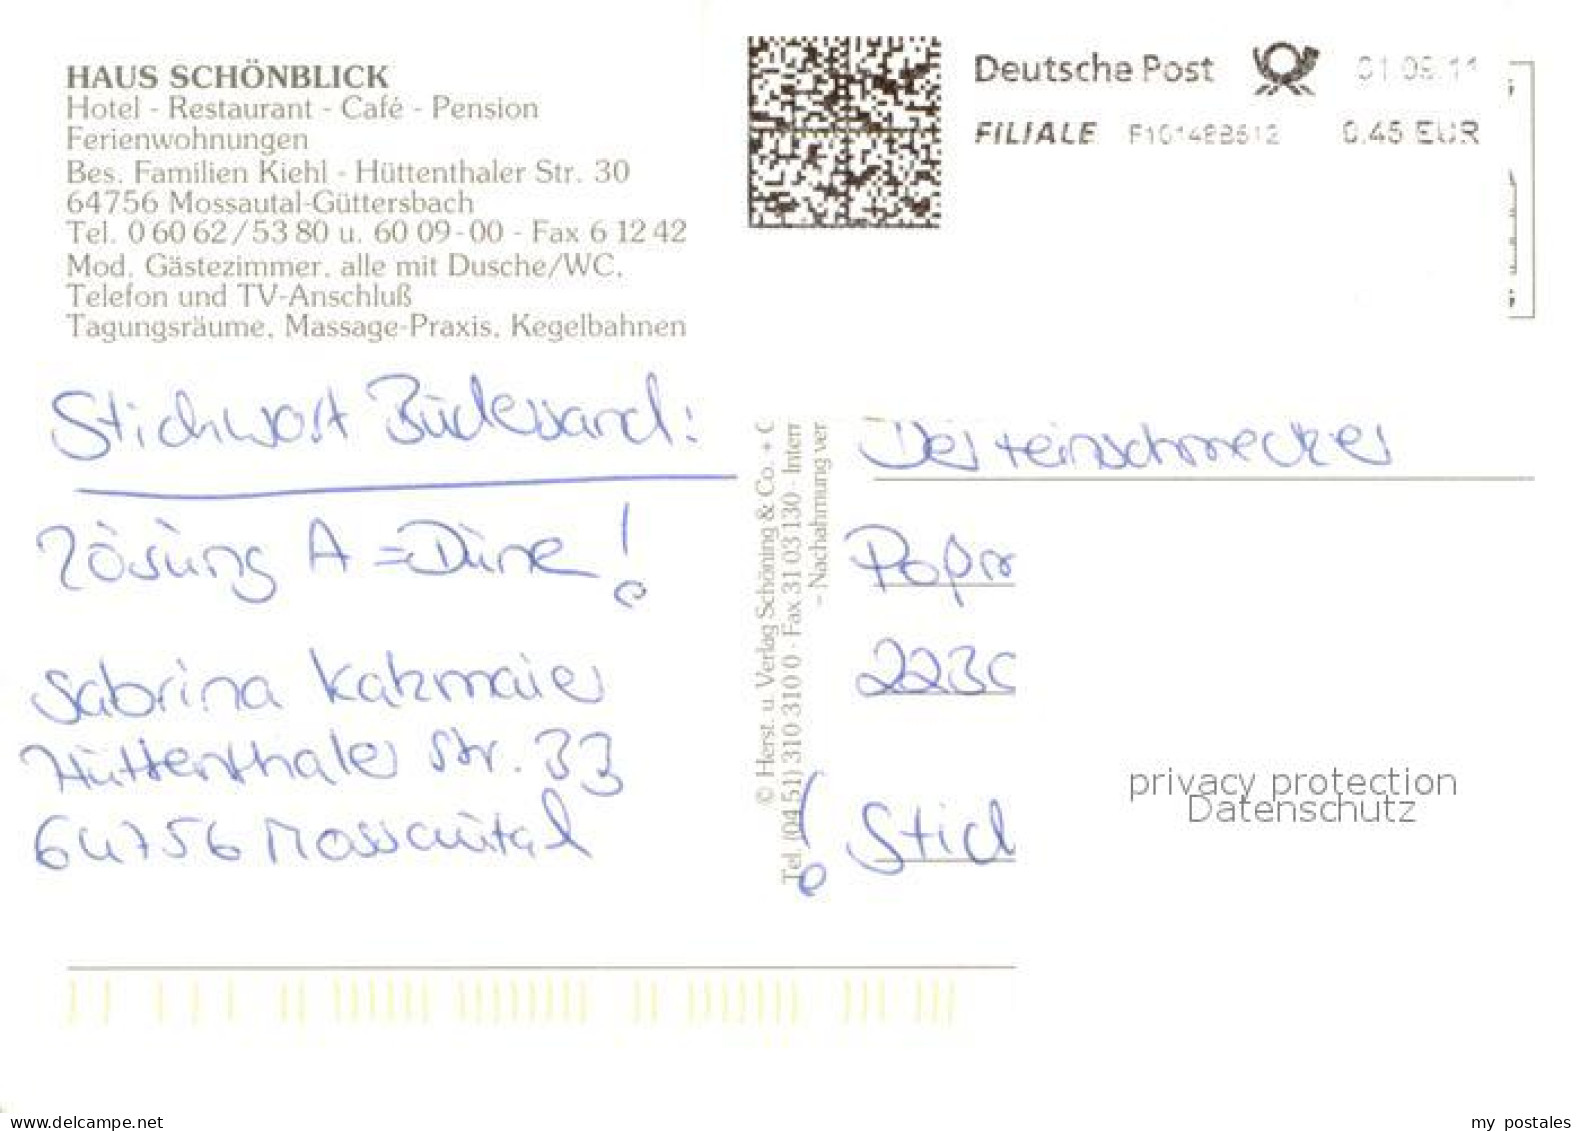 HAUS SCHÖNBLICK
Hotel - Restaurant - Café - Pension
Ferienwohnungen
Bes. Familien Kiehl - Hüttenthaler Str. 30
64756 Mossautal-Güttersbach
Tel. 0 60 62/53 80 u. 60 09-00 - Fax 6 12 42
Mod. Gästezimmer, alle mit Dusche/WC,
Telefon und TV-Anschluß
Tagungsräume, Massage-Praxis, Kegelbahnen
Deutsche Post 01.09.11
FILIALE 0.45 EUR
Stichwort :
Lösung A = Düne!
Sabrina Katzmaier
Hüttenthaler Str. 33
64756 Mossautal
© Herst. u. Verlag Schöning & Co. + C
Tel. (04 51) 310 310 0 - Fax 31 03 130 - Intern
- Nachahmung ver
Der Feinschmecker
Popp
2230
! Stich
privacy protection
Datenschutz
www.delcampe.net
my postales